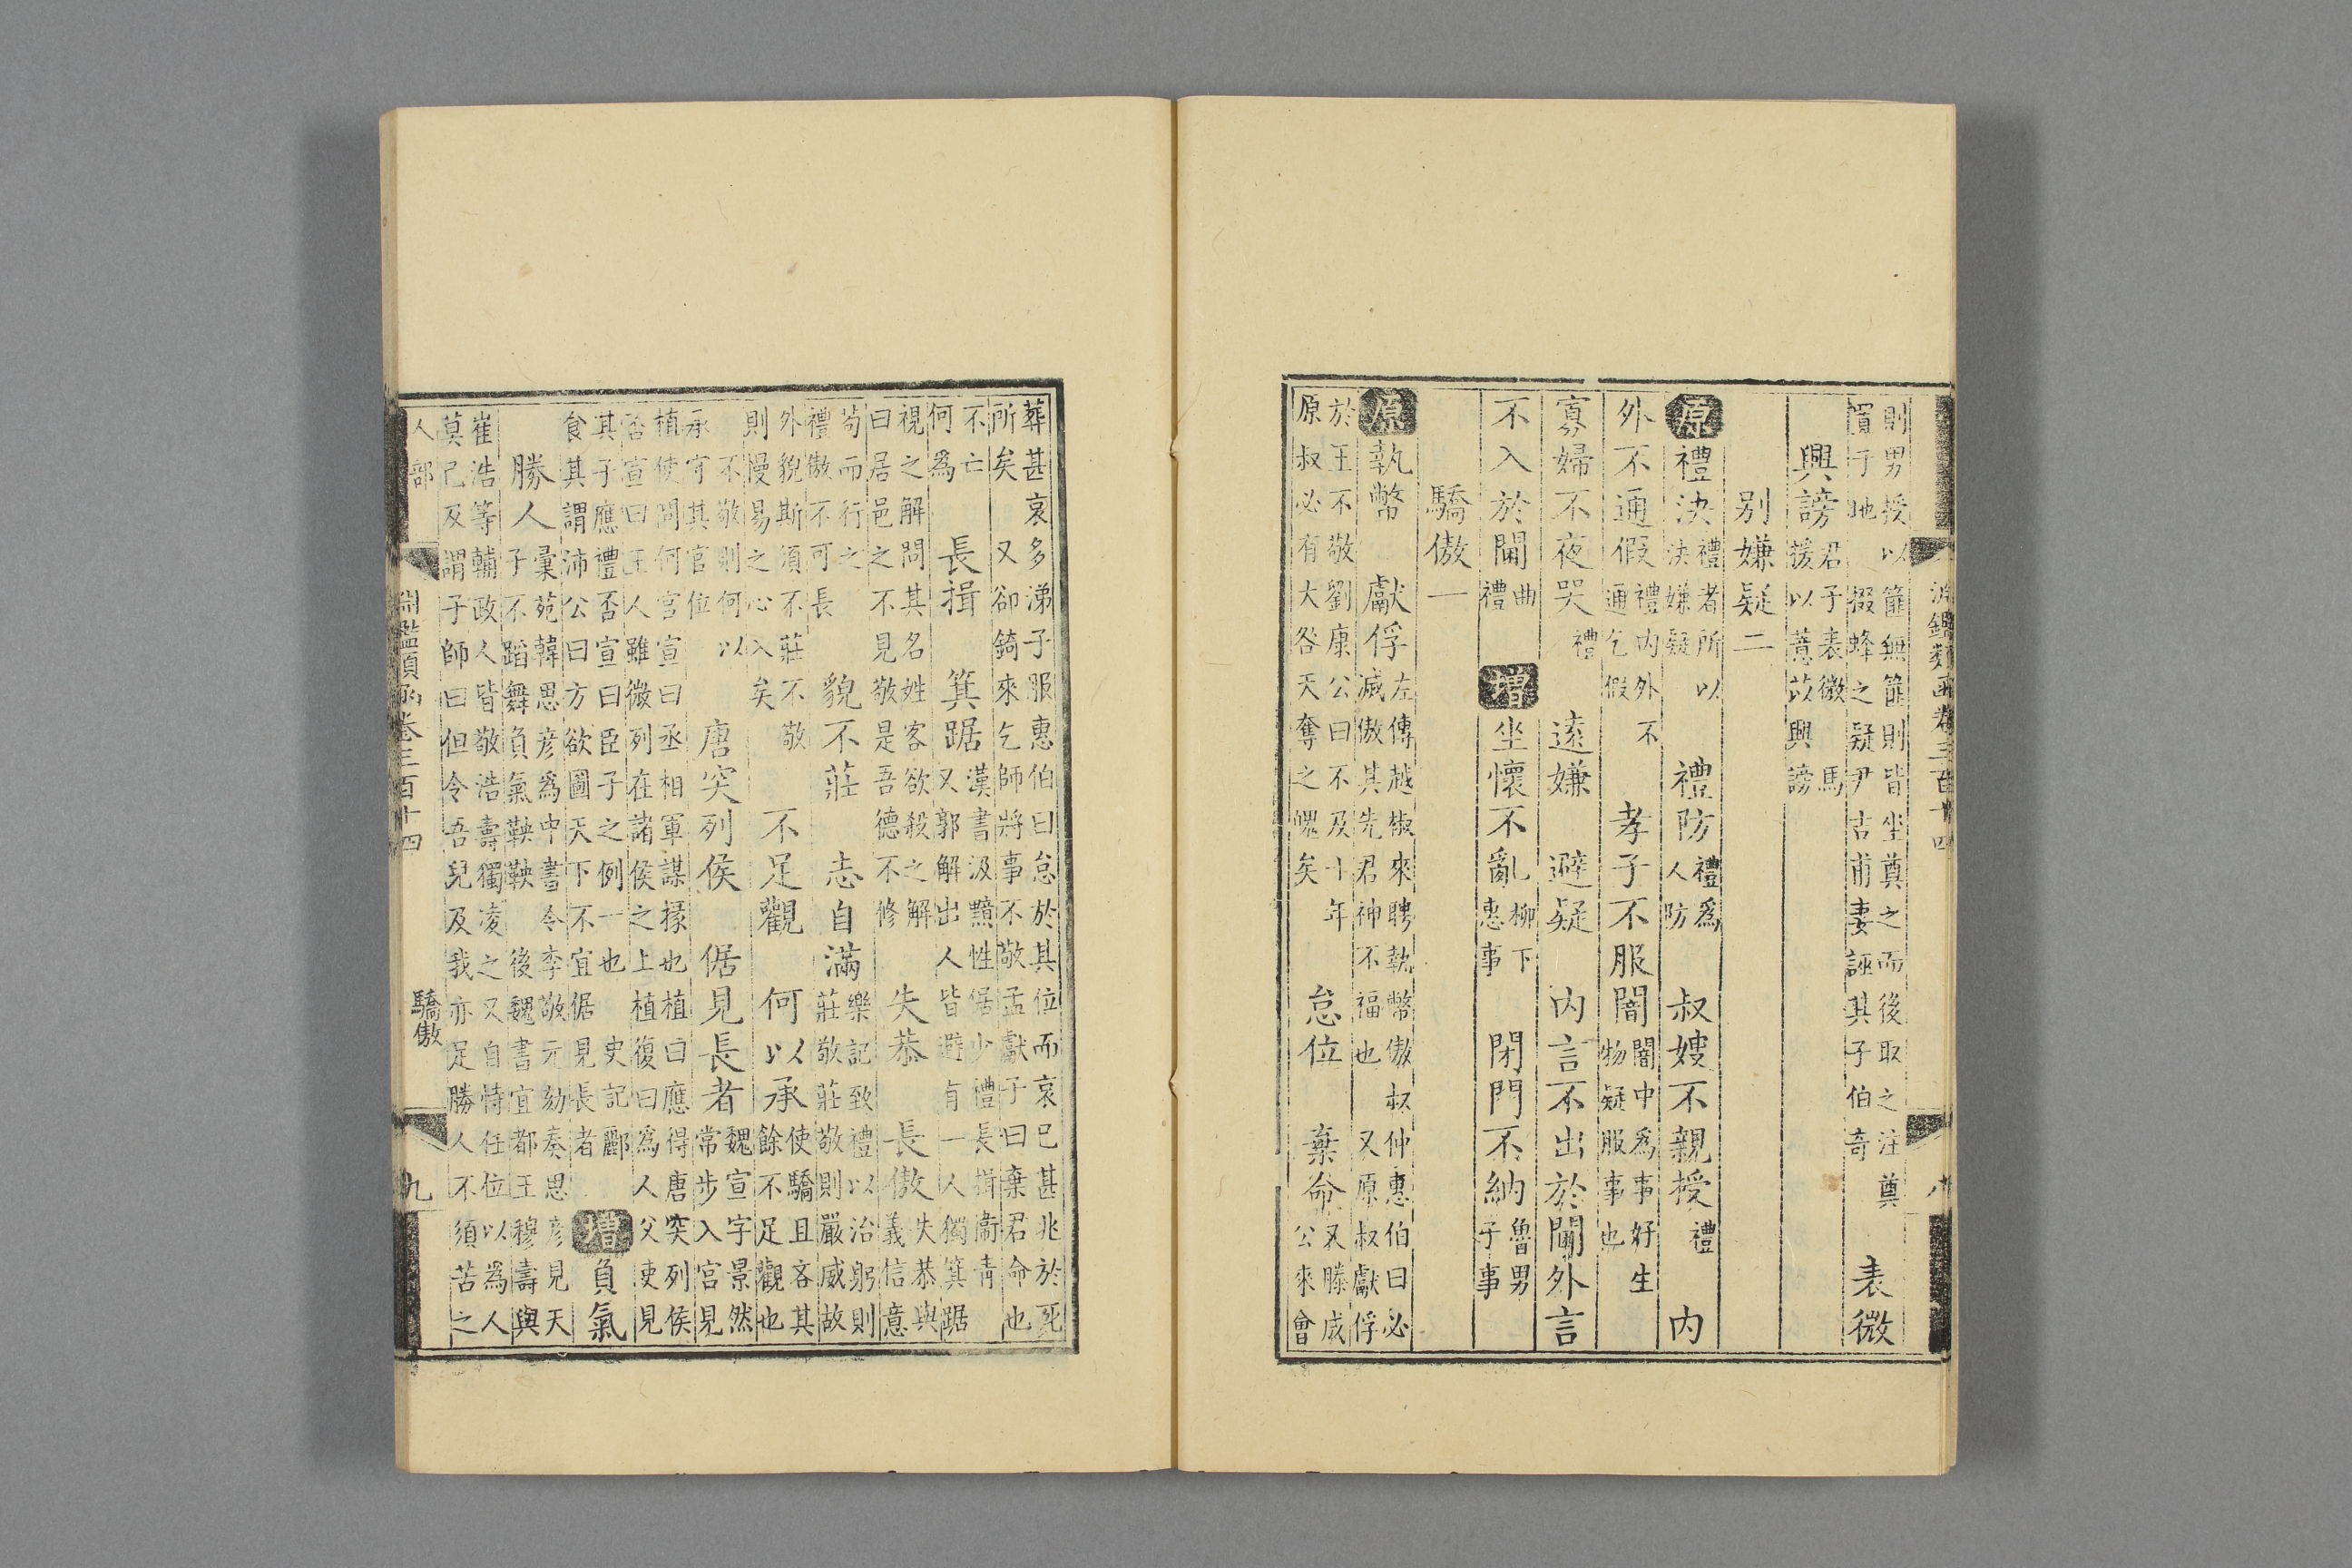 淵鑑類函卷三百十四
則男授以篚無篚則皆坐奠之而後取之注奠
置于地 掇蜂之疑尹吉甫妻誣其子伯奇 表微
興謗君子表微 馬
援以薏苡興謗
別嫌疑二
原禮決禮者所以
決嫌疑 禮防禮爲
人防 叔嫂不親授禮 內
外不通假禮內外不
通乞假 孝子不服闇闇中爲事好生
物疑服事也
寡婦不夜哭禮 遠嫌 避疑 內言不出於閫外言
不入於閫曲
禮 增坐懷不亂柳下
惠事 閉門不納魯男
子事
驕傲一
原執幣 獻俘左傳越椒來聘執幣傲叔仲惠伯曰必
滅傲其先君神不福也 又原叔獻俘
於王不敬劉康公曰不及十年
原叔必有大咎天奪之魄矣 怠位 棄命又滕成
公來會
葬甚哀多涕子服惠伯曰怠於其位而哀已甚兆於死
所矣 又卻錡來乞師將事不敬孟獻子曰棄君命也
不亡
何爲 長揖 箕踞漢書汲黯性倨少禮長揖衞青
又郭解出人皆避有一人獨箕踞
視之解問其名姓客欲殺之解
曰居邑之不見敬是吾德不修 失恭 長傲失恭與
義信意
苟而行之
禮傲不可長 貌不莊 志自滿樂記致禮以治躬則
莊敬莊敬則嚴威故
外貌斯須不莊不敬
則慢易之心入矣 不足觀 何以承使驕且吝其
餘不足觀也
不敬則何以
承守其官位 唐突列侯 倨見長者魏宣字景然
常步入宮見
植使問何官宣曰丞相軍謀掾也植曰應得唐突列侯
否宣曰王人雖微列在諸侯之上植復曰爲人父吏見
其子應禮否宣曰臣子之例一也 史記酈
食其謂沛公曰方欲圖天下不宜倨見長者 增負氣
勝人彙苑韓思彥爲中書令李敬元劾奏思彥見天
子不蹈舞負氣鞅鞅 後魏書宜都王穆壽與
崔浩等輔政人皆敬浩壽獨凌之又自恃任位以為人
莫己及謂子師曰但令吾兒及我亦足勝人不須苦之
人部 淵鑑類函卷三百十四 驕傲 九